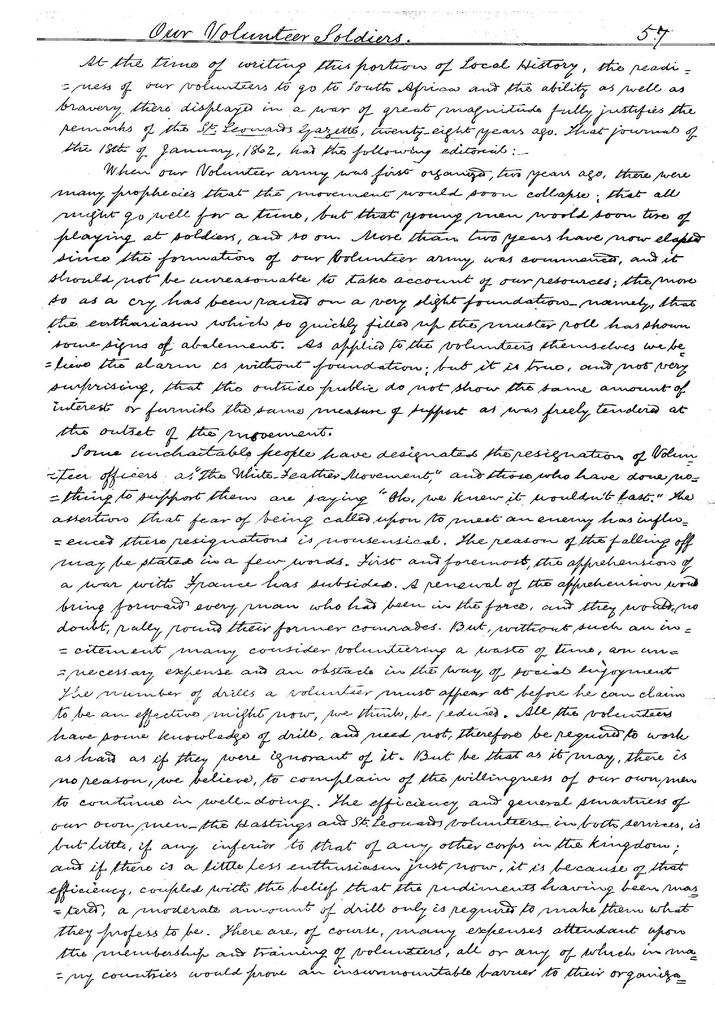 Our Volunteer Soldiers. 57
At the time of writing this portion of Local History, the readi-
=ness of our volunteers to go to South Africa and the ability as well as
bravery there displayed in a war of great magnitude fully justifies the
remarks of the St. Leonards Gazette, twenty-eight years ago. That journal of
the 18th of January, 1862, had the following editorial:-
When our Volunteer army was first organized, two years ago, there were
many prophecies that the movement would soon collapse; that all
might go well for a time, but that young men would soon tire of
playing at soldiers, and so on. More than two years have now elapsed
since the formation of our Volunteer army was commenced, and it
should not be unreasonable to take account of our resources; the more
so as a cry has been raised on a very slight foundation - namely, that
the enthusiasm which so quickly filled up the muster roll has shown
some signs of abatement. As applied to the volunteers themselves we be-
=lieve the alarm is without foundation; but it is true, and not very
surprising, that the outside public do not show the same amount of
interest or furnish the same measure of support as was freely tendered at
the outset of the movement.
Some uncharitable people have designated the resignation of Volun-
=teer officers as "the White-Feather Movement," and those who have done no-
=thing to support them are saying "Oh, we knew it wouldn't last." The
assertion that fear of being called upon to meet an enemy has influ-
=enced these resignations is nonsensical. The reason of the falling off
may be stated in a few words. First and foremost, the apprehension of
a war with France has subsided. A renewal of the apprehension would
bring forward every man who had been in the force, and they would, no
doubt, rally round their former comrades. But, without such an in-
=citement many consider volunteering a waste of time, an un-
=necessary expense and an obstacle in the way of social enjoyment
The number of drills a volunteer must appear at before he can claim
to be an effective might now, we think, be reduced. All the volunteers
have some knowledge of drill, and need not, therefore be required to work
as hard as if they were ignorant of it. But be that as it may, there is
no reason, we believe, to complain of the willingness of our own men
to continue in well-doing. The efficiency and general smartness of
our own men - the Hastings and St. Leonards volunteers - in both services, is
but little, if any inferior to that of any other corps in the kingdom;
and if there is a little less enthusiasm just now, it is because of that
efficiency, coupled with the belief that the rudiments having been mas-
=tered, a moderate amount of drill only is required to make them what
they profess to be. There are, of course, many expenses attendant upon
the membership and training of volunteers, all or any of which in ma-
=ny countries would prove an insurmountable barrier to their organiza-